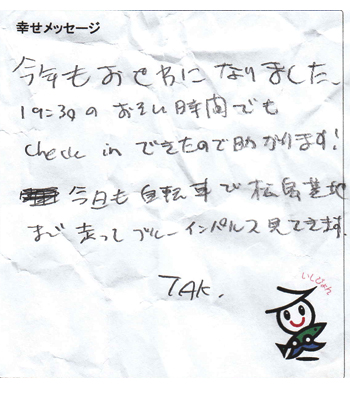 幸せメッセージ
今年もおせわになりました。
19:30のおそい時間でも
check inできたので助かります!
今日も自転車で松島基地
まで走ってブルーインパルス見てきます
TAK.
いしぴょん